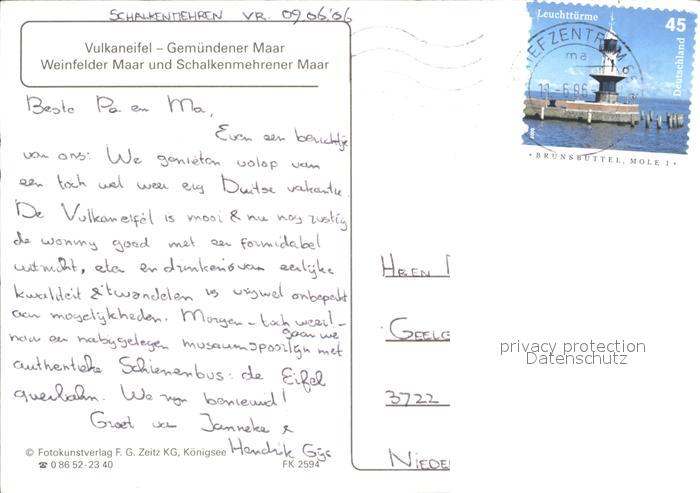 SCHALKENMEHREN VR. 09.06.'06
Vulkaneifel – Gemündener Maar
Weinfelder Maar und Schalkenmehrener Maar
Beste Pa en Ma,
Even een berichtje
van ons: We genieten volop van
een toch wel weer erg Duitse vakantie.
De Vulkaneifel is mooi & nu nog rustig
de woning goed met een formidabel
uitzicht, eten en drinken is van eerlijke
kwaliteit & 't wandelen is vrijwel onbeperkt
aan mogelijkheden. Morgen - toch weer! -
gaan we
naar een nabijgelegen museumspoorlijn met
authentieke Schienenbus: de Eifel
querbahn. We zijn benieuwd!
Groet van Janneke &
Hendrik Gijs
© Fotokunstverlag F. G. Zeitz KG, Königsee
☎ 0 86 52 - 23 40
FK 2594
Leuchttürme
45
Deutschland
BRIEFZENTRUM 6
ma
• BRUNSBÜTTEL, MOLE 1 •
HEEN
GEELG
3722
NIEDE
privacy protection
Datenschutz